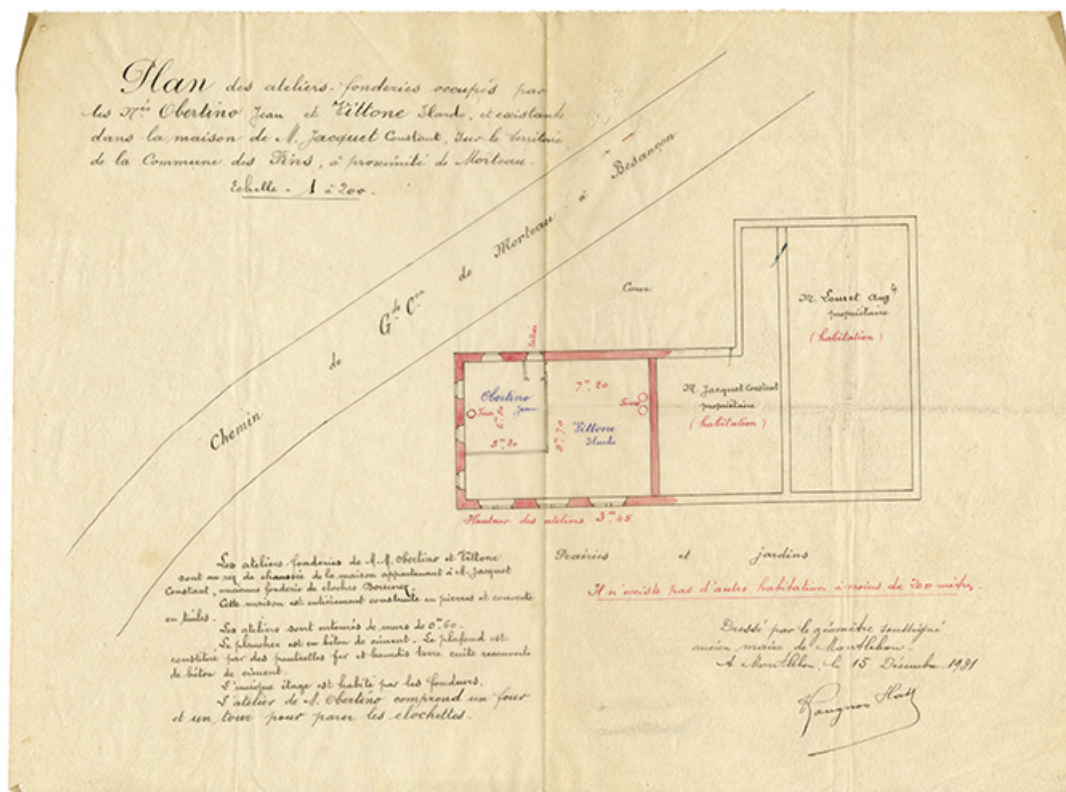 Plan des ateliers-fonderies occupés par
les Mrs Obertino Jean et Vittone, et existants
dans la maison de M. Jacquet Constant, sur le territoire
de la Commune des Fins, à proximité de Morteau.
Echelle - 1 à 200.
Chemin de Gde Con de Morteau à Besançon
Cour
M. Louvet Aug
propriétaire
(habitation)
Entrée
Obertino
Jean
Four
5m,80
7m,20
9m,70
Vittone
Fours
M. Jacquet Constant
propriétaire
(habitation)
Hauteur des ateliers 3m,45
Prairies et jardins
Il n'existe pas d'autre habitation à moins de 200 mètres.
Les ateliers-fonderies de M.M. Obertino et Vittone
sont au rez de chaussée de la maison appartenant à M. Jacquet
Constant, ancienne fonderie de cloches
Cette maison est entièrement construite en pierres et couverte
en tuiles.
Les ateliers sont entourés de murs de 0m,60.
Le plancher est en béton de ciment. Le plafond est
constitué par des poutrelles fer et hourdis terre cuite recouverts
de béton de ciment.
L'unique étage est habité par les fondeurs.
L'atelier de M. Obertino comprend un four
et un tour pour parer les clochettes.
Dressé par le géomètre soussigné
ancien maire de Montlebon.
A Montlebon, le 15 Décembre 1931